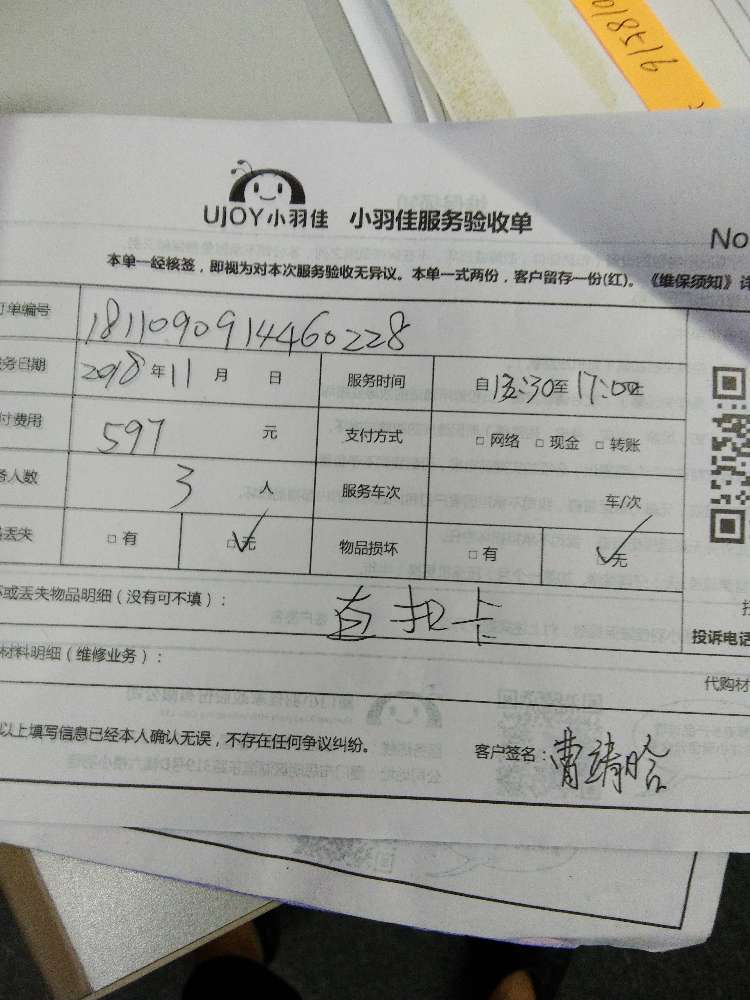 018516
UJOY小羽佳 小羽佳服务验收单
No
本单一经核签，即视为对本次服务验收无异议。本单一式两份，客户留存一份(红)。《维保须知》详
订单编号 1811090914460228
务日期 2018 年 11 月 日 服务时间 自 13:30 至 17:00
付费用 597 元 支付方式 □ 网络 □ 现金 □ 转账
务人数 3 人 服务车次 车/次
品丢失 □ 有 □ 无 物品损坏 □ 有 □ 无
坏或丢失物品明细（没有可不填）： 直扣卡
投诉电话
材料明细（维修业务）：
代购材
以上填写信息已经本人确认无误，不存在任何争议纠纷。 客户签名：曹靖晗